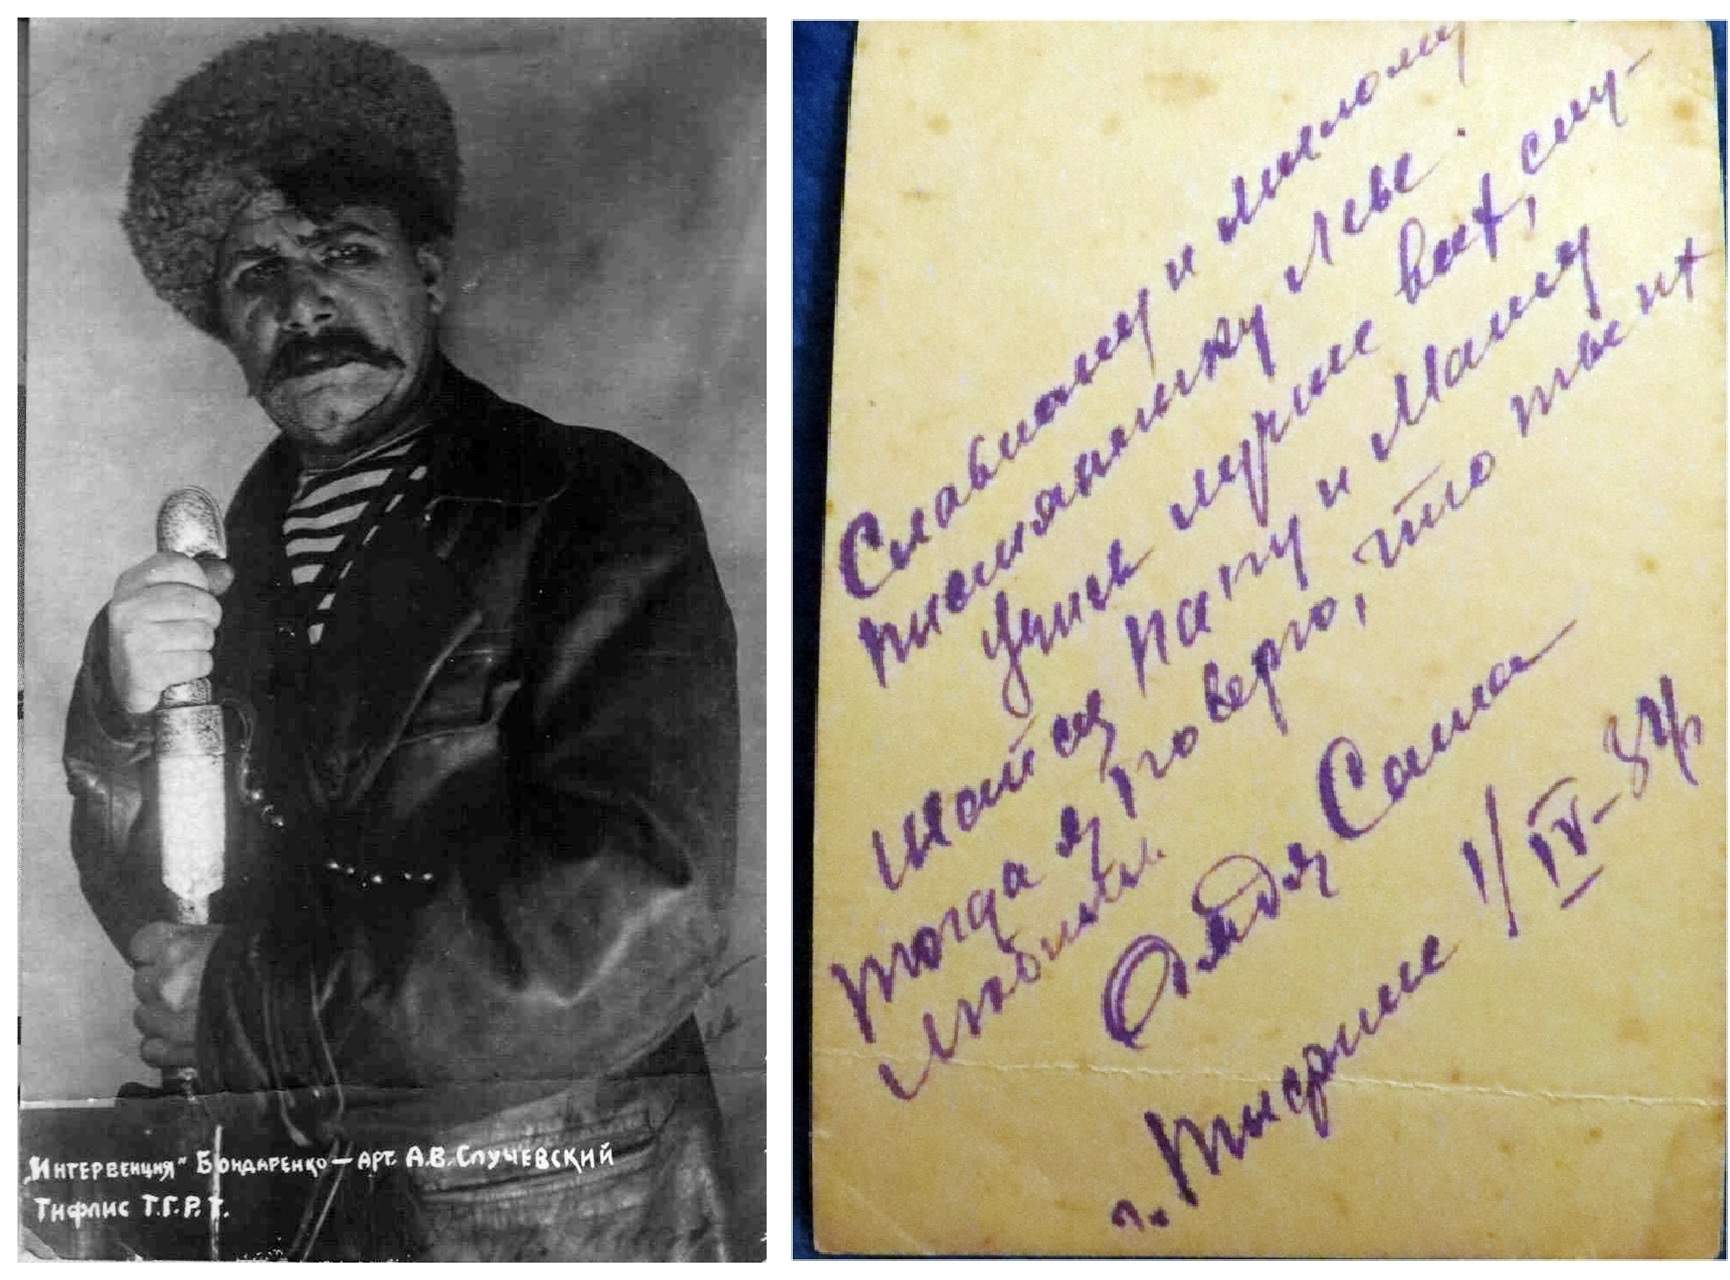 „Интервенция" Бондаренко — арт. А.В. Случевский
Тифлис Т.Г.Р.Т.
Славному и милому
племяннику Леве.
Учись лучше всех, слу-
шайся папу и Маму
тогда я поверю, что ты их
любишь.
Дядя Саша
г. Тифлис 1/IV-34г.